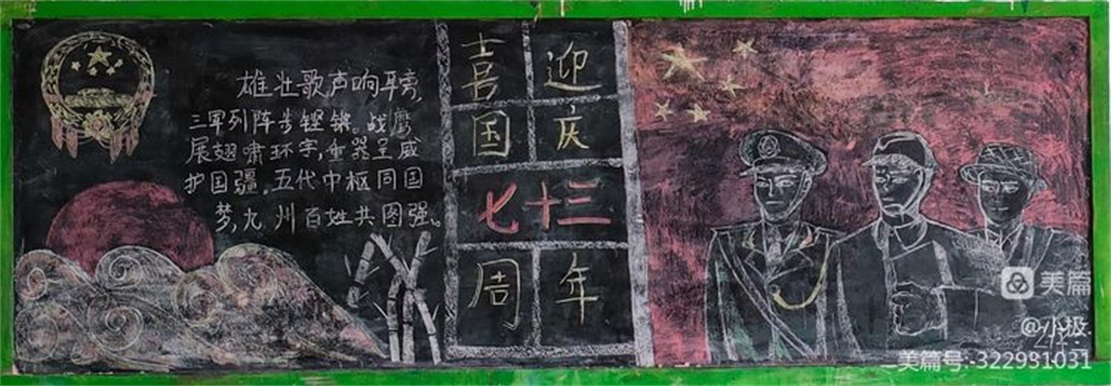 雄壮歌声响耳旁,
三军列阵步铿锵。战鹰
展翅啸环宇,重器呈威
护国疆,五代中枢同国
梦,九州百姓共图强。
喜迎
国庆
七十三
周年
美篇
@小极
美篇号:322931031